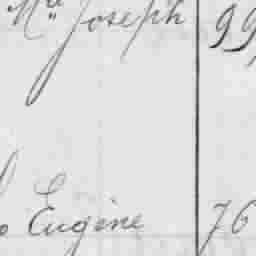 Ma Joseph 99
Eugène 76